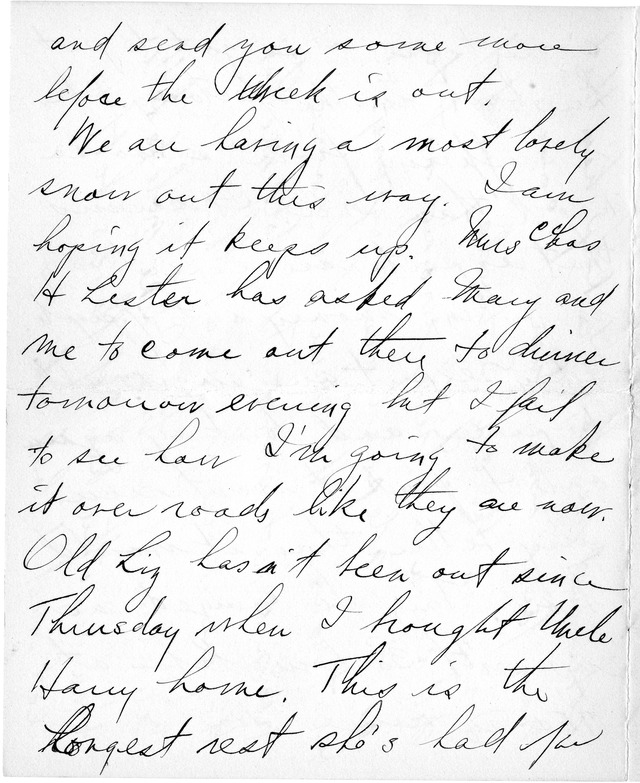 and send you some more
before the week is out.
We are having a most lovely
snow out this way. I am
hoping it keeps up. Mrs Chas
H Lester has asked Mary and
me to come out there to dinner
tomorrow evening but I fail
to see how I'm going to make
it over roads like they are now.
Old Liz hasn't been out since
Thursday when I brought Uncle
Harry home. This is the
longest rest she's had for